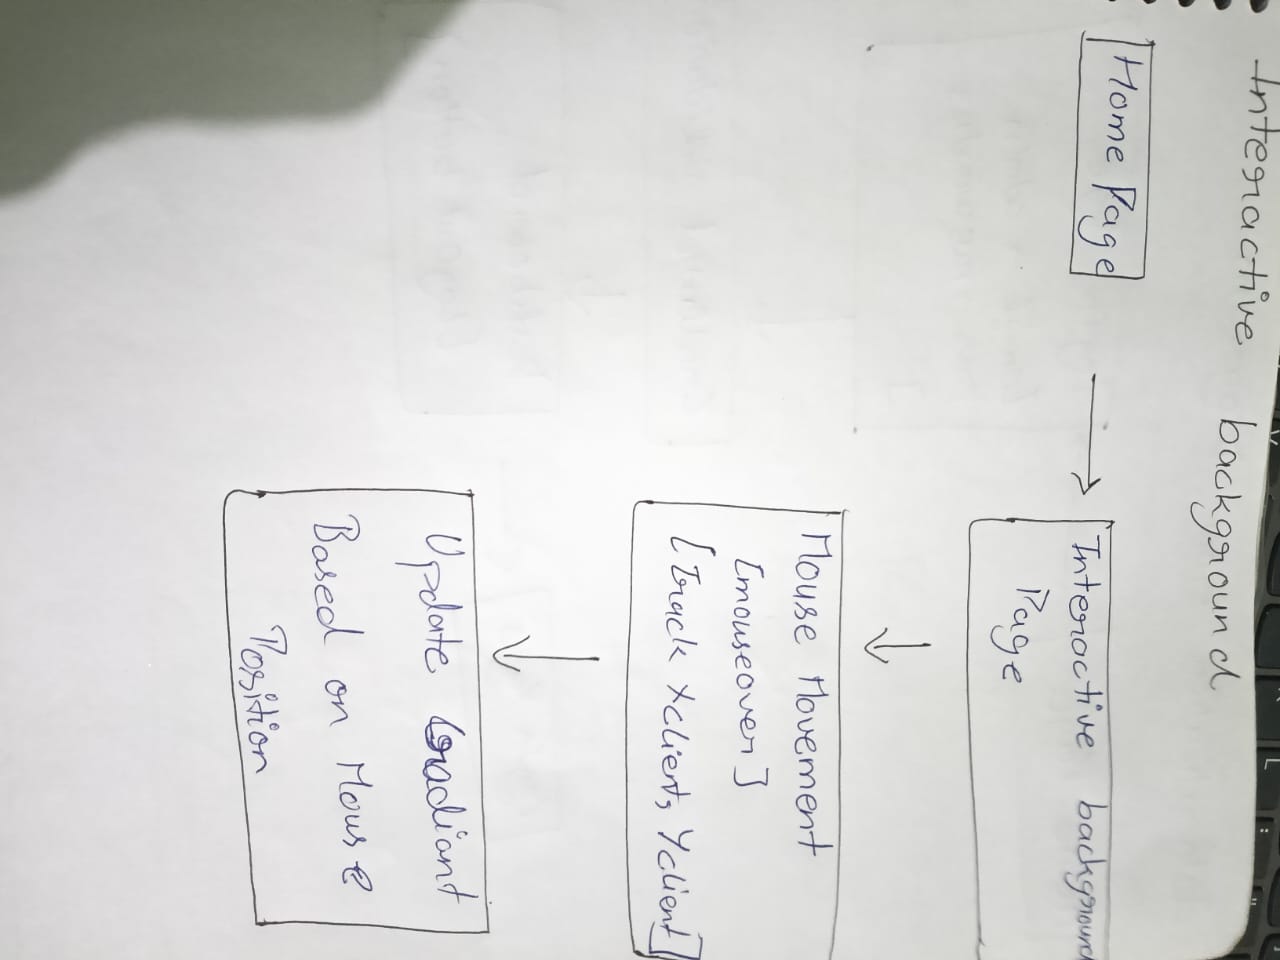 Interactive background
Home Page
Interactive background
Page
Mouse Movement
[mouseover]
[Track Xclient, Yclient]
Update Gradiant
Based on Mouse
Position